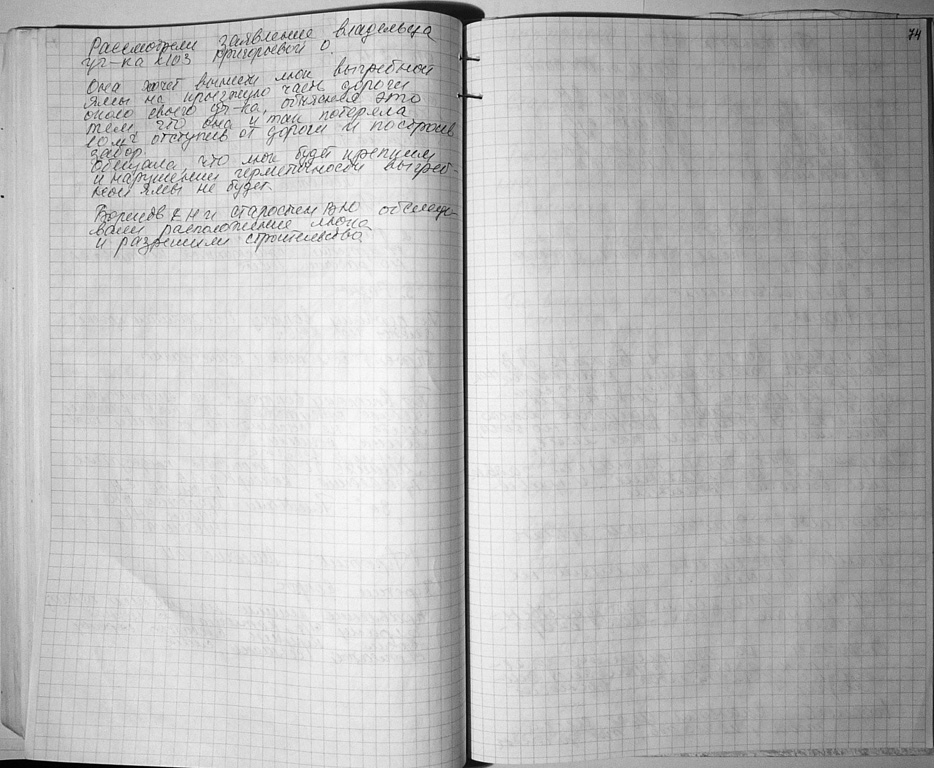 Рассмотрели заявление владельца
уч-ка №103 Григорьевой О.
Она хочет вынести люк выгребной
ямы на проезжую часть дороги
около своего уч-ка, объясняя это
тем, что она и так потеряла
отступив от дороги и построив
забор.
Обещала, что люк будет крепким
и нарушений герметичности выгреб-
ной ямы не будет.
Борисов и старостой обследо-
вали расположение люка
и разрешили строительство
74